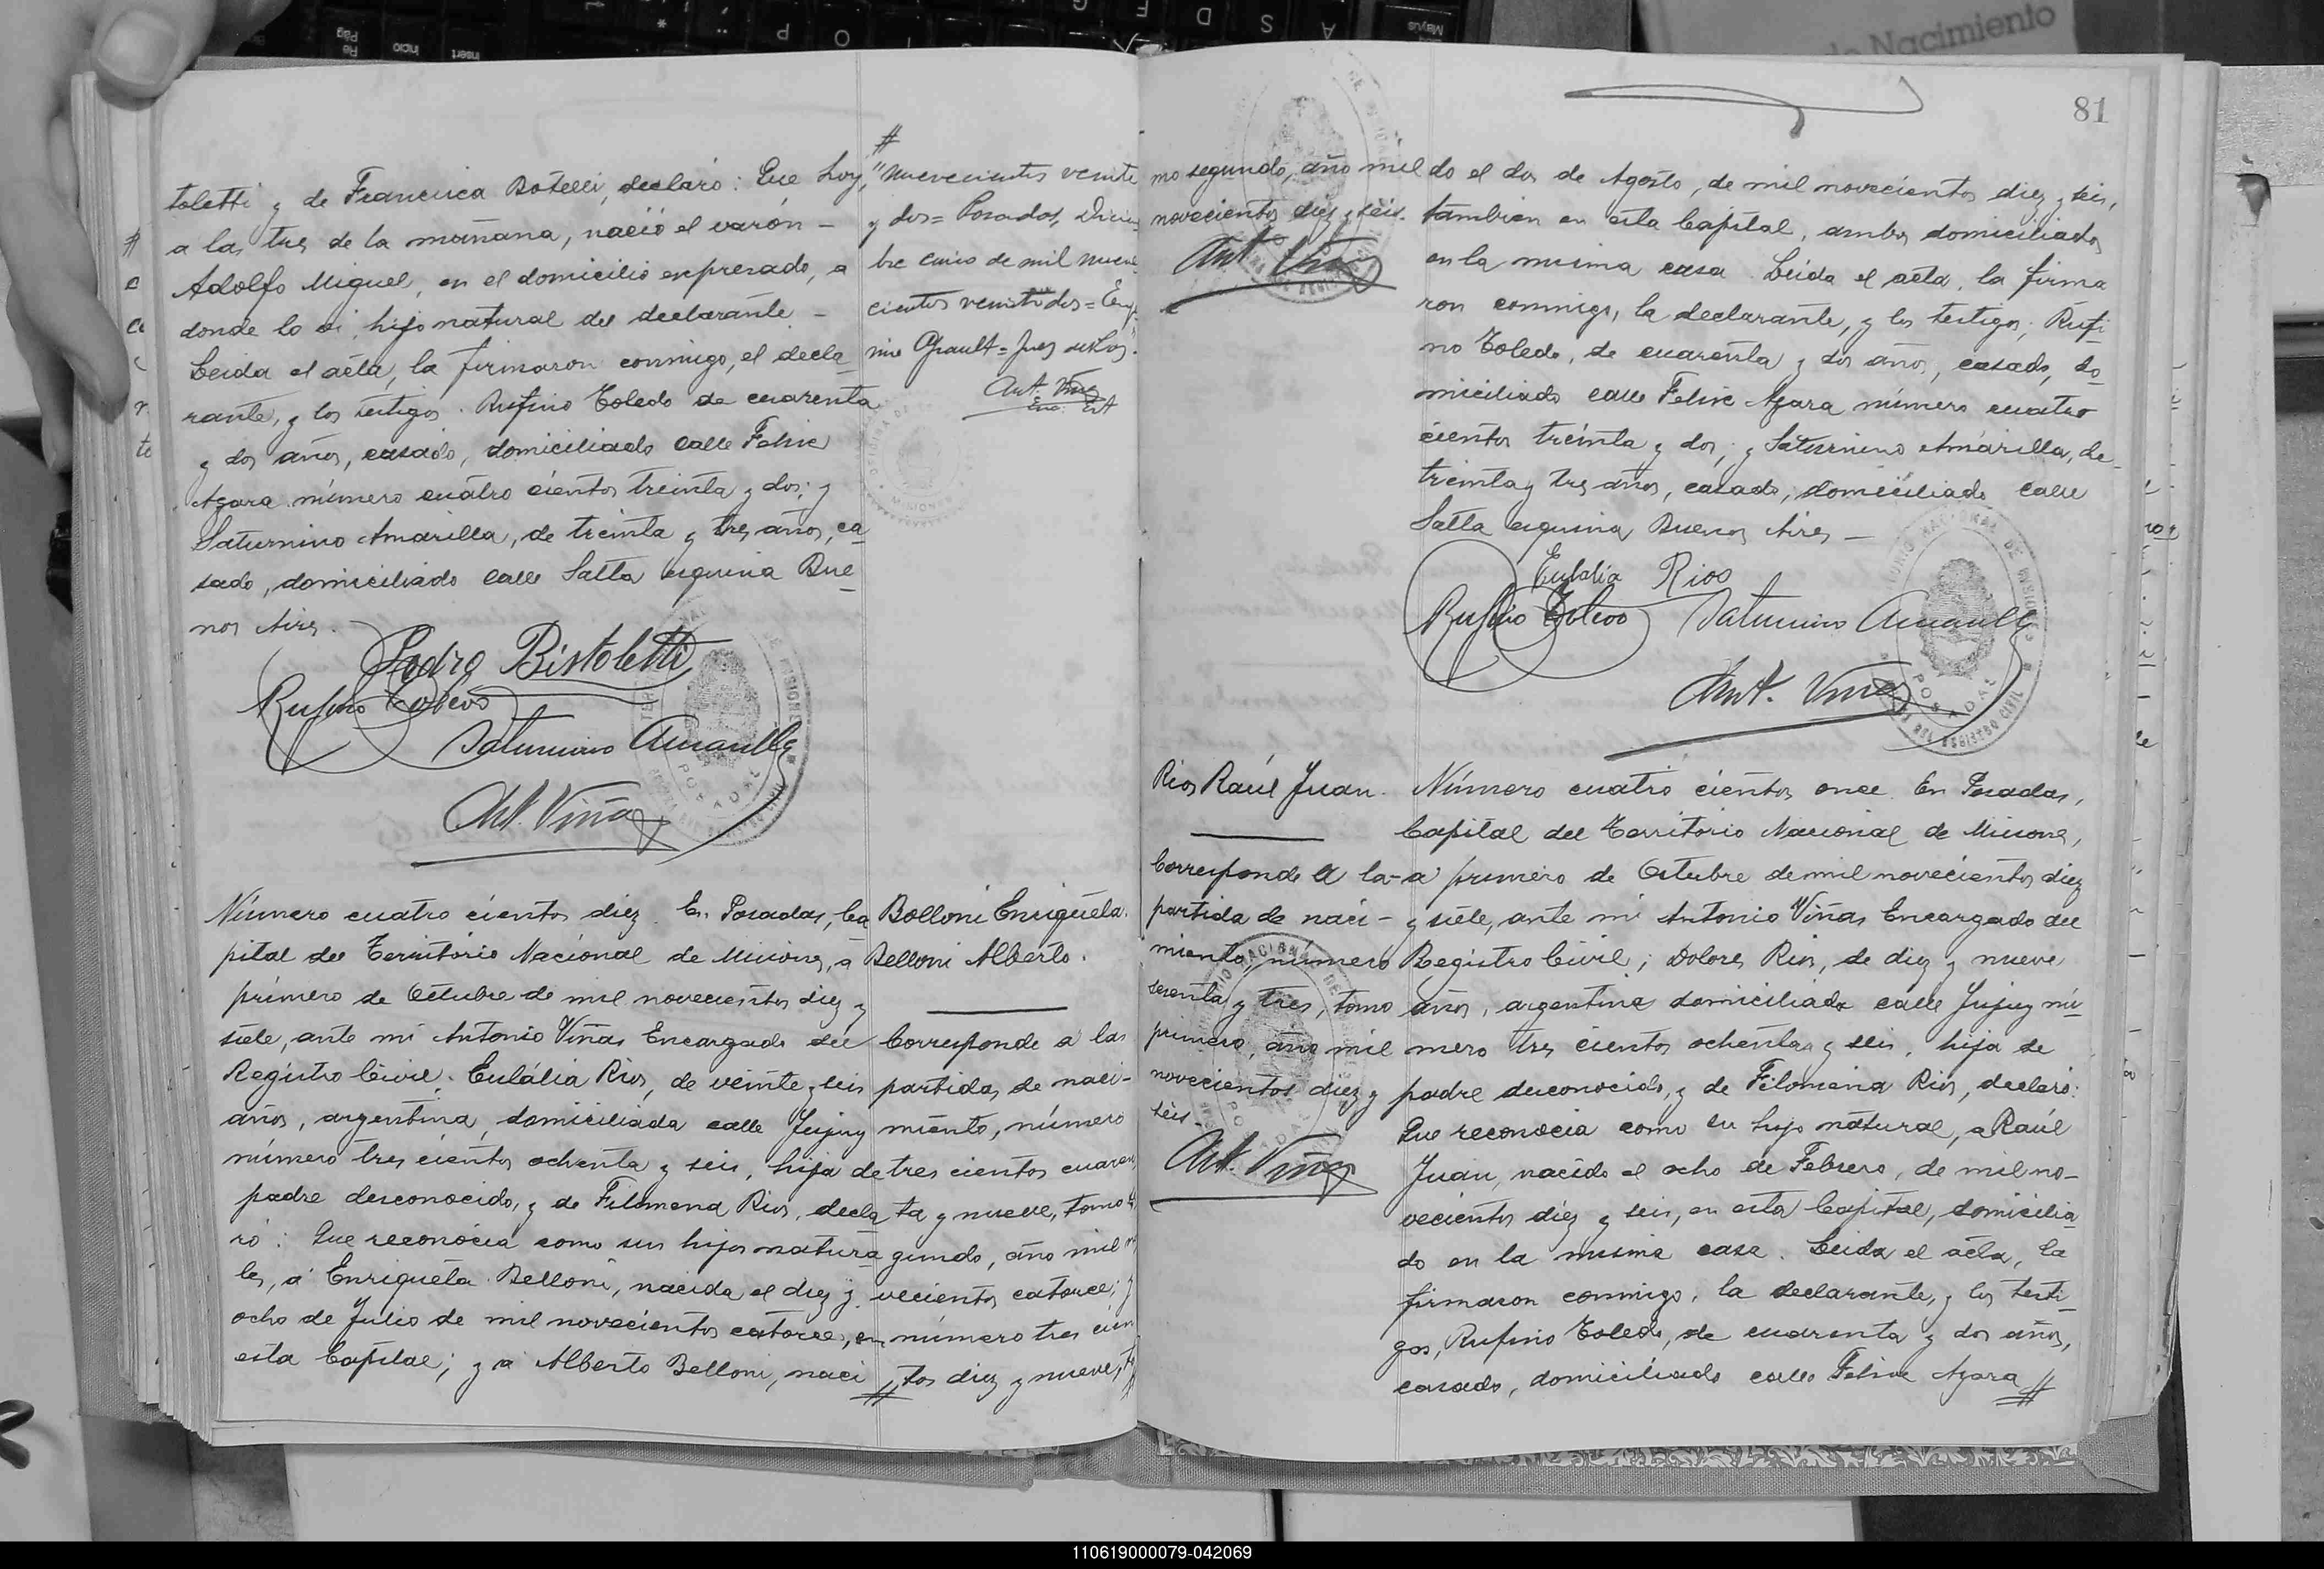 toletti y de Francisca Botelli, declaró: Que hoy,
a las tres de la mañana, nació el varón —
Adolfo Miguel, en el domicilio expresado, a
donde lo vi, hijo natural del declarante. —
Leida el acta, la firmaron conmigo, el decla
rante, y los testigos. Rufino Toledo de cuarenta
y dos años, casado, domiciliado calle Felix
Azara número cuatro cientos treinta y dos; y
Saturnino Amarilla, de treinta y tres años, ca
sado, domiciliado calle Salta esquina Bue
nos Aires.
Pedro Bistoletti
Rufino Toledo
Saturnino Amarilla
Ant. Viñas
#
"nuevecientos veinte
y dos = Posadas, Diciem
bre cinco de mil nueve
cientos veintidos =
Juez
Ant. Viñas
Número cuatro cientos diez. En Posadas, Ca
pital del Territorio Nacional de Misiones, a
primero de Octubre de mil novecientos diez y
siete, ante mi Antonio Viñas Encargado del
Registro Civil. Eulália Rios, de veinte y seis
años, argentina, domiciliada calle Jujuy
número tres cientos ochenta y seis, hija de
padre desconocido, y de Filomena Rios, decla
ró: Que reconócia como sus hijos natura
les, a Enriqueta Belloni, nacida el diez y
ocho de Julio de mil novecientos catorce, en
esta Capital; y a Alberto Belloni, naci
Bolloni Enriqueta.
Belloni Alberto.
Corresponde a las
partidas de naci-
miento, número
tres cientos cuaren
ta y nueve, tomo
gundo, año mil
vecientos catorce; y
número tres cien
tos diez y nueve,
#
81
mo segundo, año mil
novecientos diez y seis.
Ant. Viñas
do el dos de Agosto, de mil novecientos diez y seis,
tambien en esta Capital, ambos domiciliados
en la misma casa. Leida el acta, la firma
ron conmigo, la declarante, y los testigos; Rufi
no Toledo, de cuarenta y dos años, casado, do
miciliado calle Felix Azara número cuatro
cientos treinta y dos; y Saturnino Amarilla, de
treinta y tres años, casado, domiciliado calle
Salta esquina Buenos Aires —
Eulalia Rios
Rufino Toledo Saturnino Amarilla
Ant. Viñas
Rios Raúl Juan.
Corresponde a la
partida de naci-
miento, número
sesenta y tres, tomo
primero, año mil
novecientos diez y
seis.
Ant. Viñas
Número cuatro cientos once. En Posadas,
Capital del Territorio Nacional de Misiones,
a primero de Octubre de mil novecientos diez
y siete, ante mi Antonio Viñas Encargado del
Registro Civil; Dolores Rios, de diez y nueve
años, argentina domiciliada calle Jujuy nú
mero tres cientos ochenta y seis, hija de
padre desconocido, y de Filomena Rios, declaró:
Que reconocia como su hijo natural, a Raúl
Juan, nacido el ocho de Febrero, de mil no-
vecientos diez y seis, en esta Capital, domicilia
do en la misma casa. Leida el acta, la
firmaron conmigo, la declarante, y los testi
gos, Rufino Toledo, de cuarenta y dos años,
casado, domiciliado calle Felix Azara #
110619000079-042069